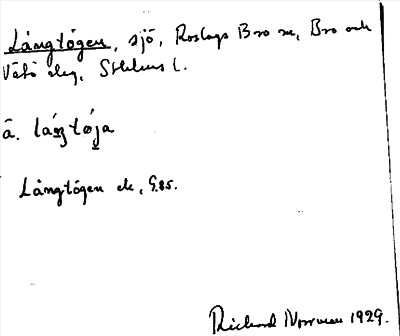 Långtögen, sjö, Roslags Bro sn, Bro och
Vätö slg, Sthlms l.
å. láŋtǿja
Långtögen ek, G.85.
Richard Norrman 1929.